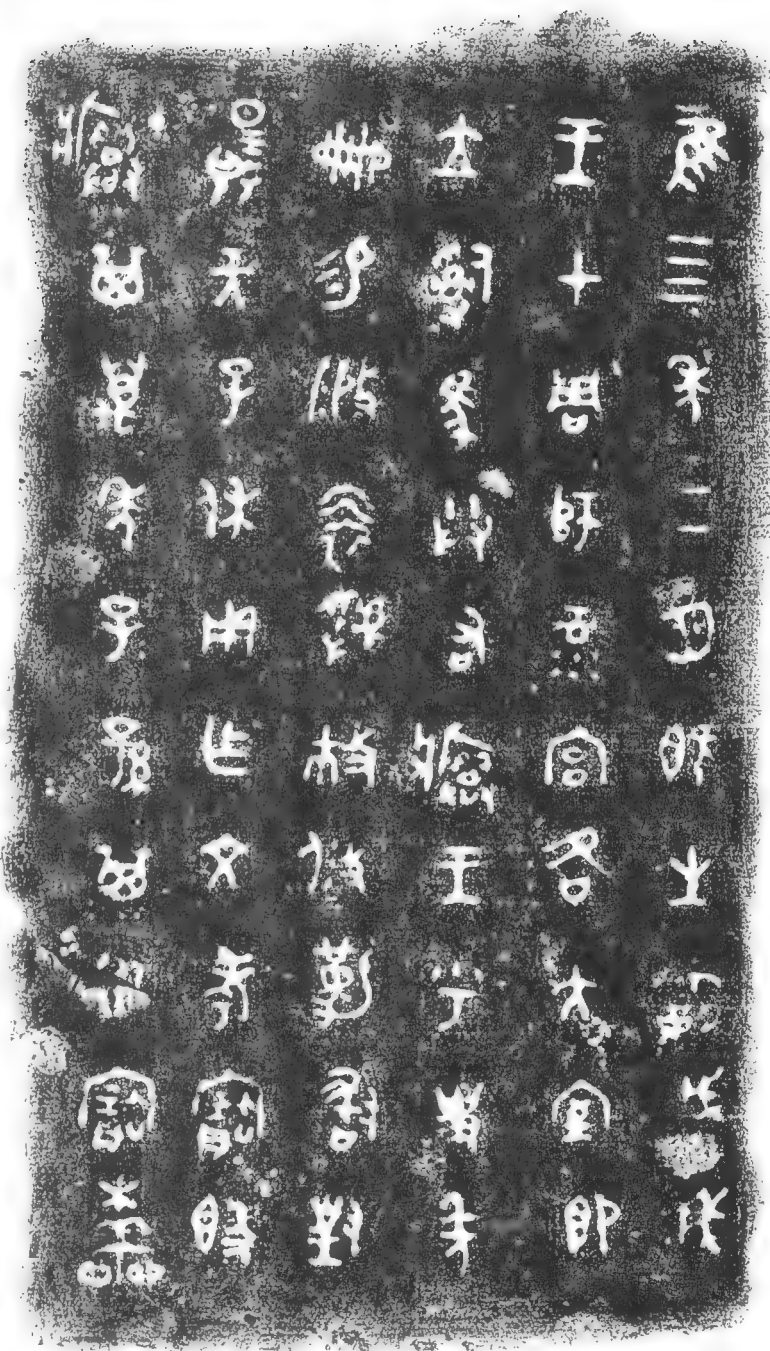 隹四年二月既生霸戊戌
王才周師彔宮各大室即
立𤔲馬共右𤼈王乎史年
冊易虢攸勒敢對
揚天子休用乍文考寶簋
𤼈其萬年子孫其永寶